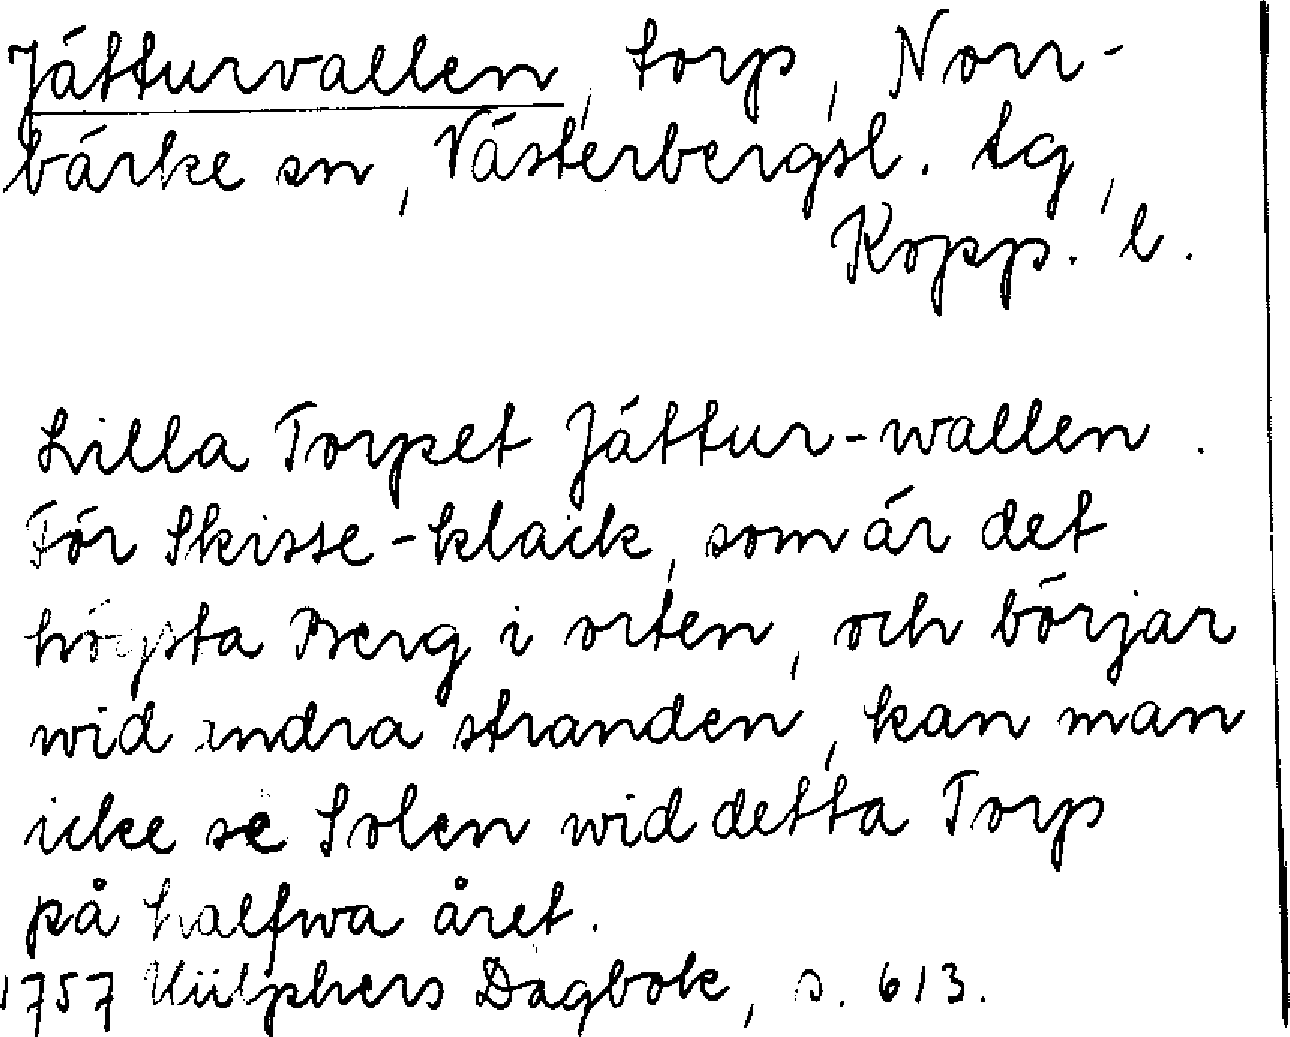 Jätturvallen, torp, Norr-
bärke sn, Västerbergsl. tg,
Kopp. l.
Lilla Torpet Jättur-wallen.
För Skisse-klack, som är det
högsta Berg i orten, och börjar
wid andra stranden, kan man
icke se Solen wid detta Torp
på halfwa året.
1757 Hülphers Dagbok, s. 613.